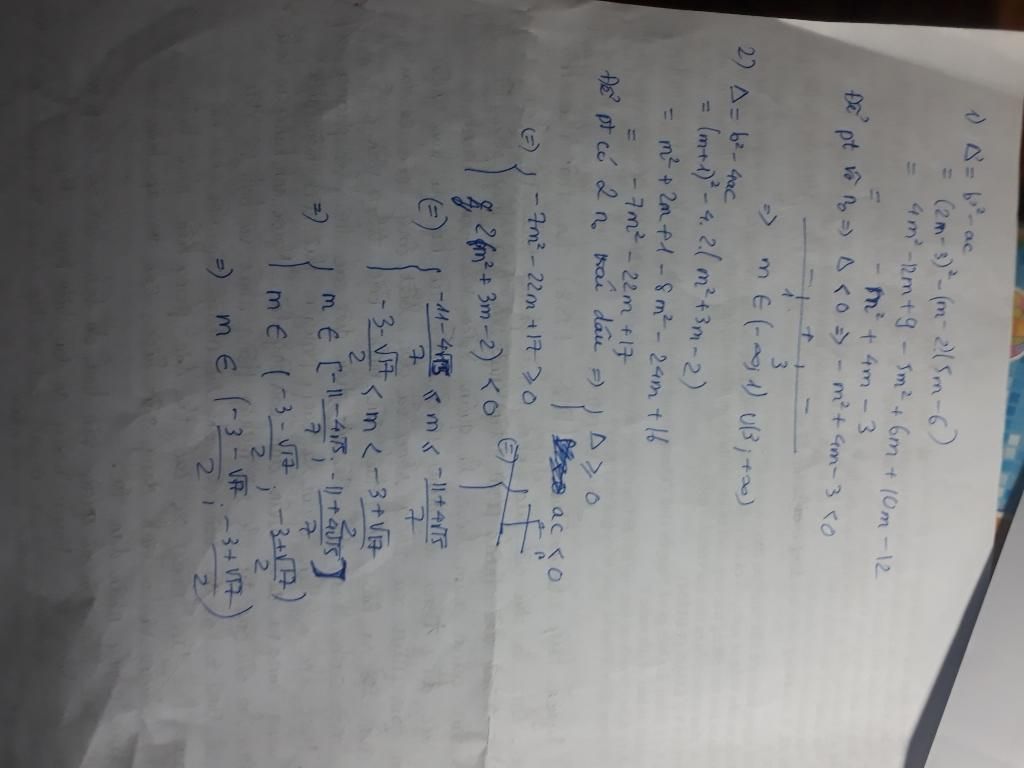 1) Δ' = b'² - ac
= (2m - 3)² - (m - 2)(5m - 6)
= 4m² - 12m + 9 - 5m² + 6m + 10m - 12
= - m² + 4m - 3
Để pt vô n₀ => Δ < 0 => - m² + 4m - 3 < 0
- 1 + 3 -
=> m ∈ (-∞, 1) ∪ (3; +∞)
2) Δ = b² - 4ac
= (m+1)² - 4.2(m² + 3m - 2)
= m² + 2m + 1 - 8m² - 24m + 16
= - 7m² - 22m + 17
Để pt có 2 n₀ trái dấu => { Δ ≥ 0
ac < 0
(=) { - 7m² - 22m + 17 ≥ 0
2(m² + 3m - 2) < 0
(=) { (-11 - 4√15)/7 ≤ m ≤ (-11 + 4√15)/7
(-3 - √17)/2 < m < (-3 + √17)/2
=> { m ∈ [(-11 - 4√15)/7; (-11 + 4√15)/7]
m ∈ ((-3 - √17)/2; (-3 + √17)/2)
=> m ∈ ((-3 - √17)/2; (-3 + √17)/2)